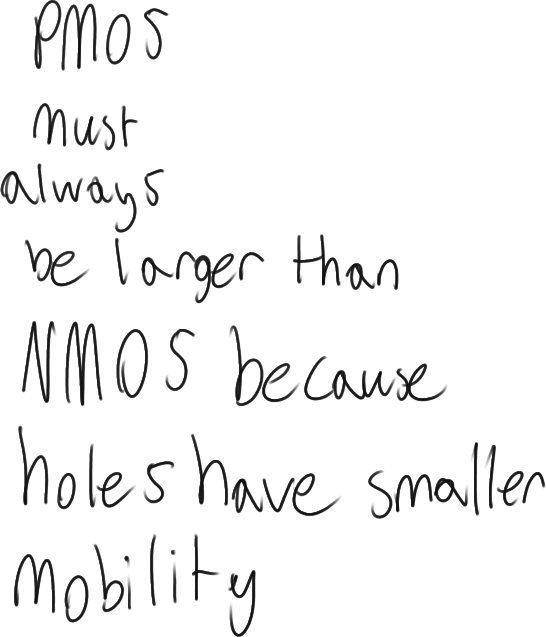 PMOS
must
always
be larger than
NMOS because
holes have smaller
mobility